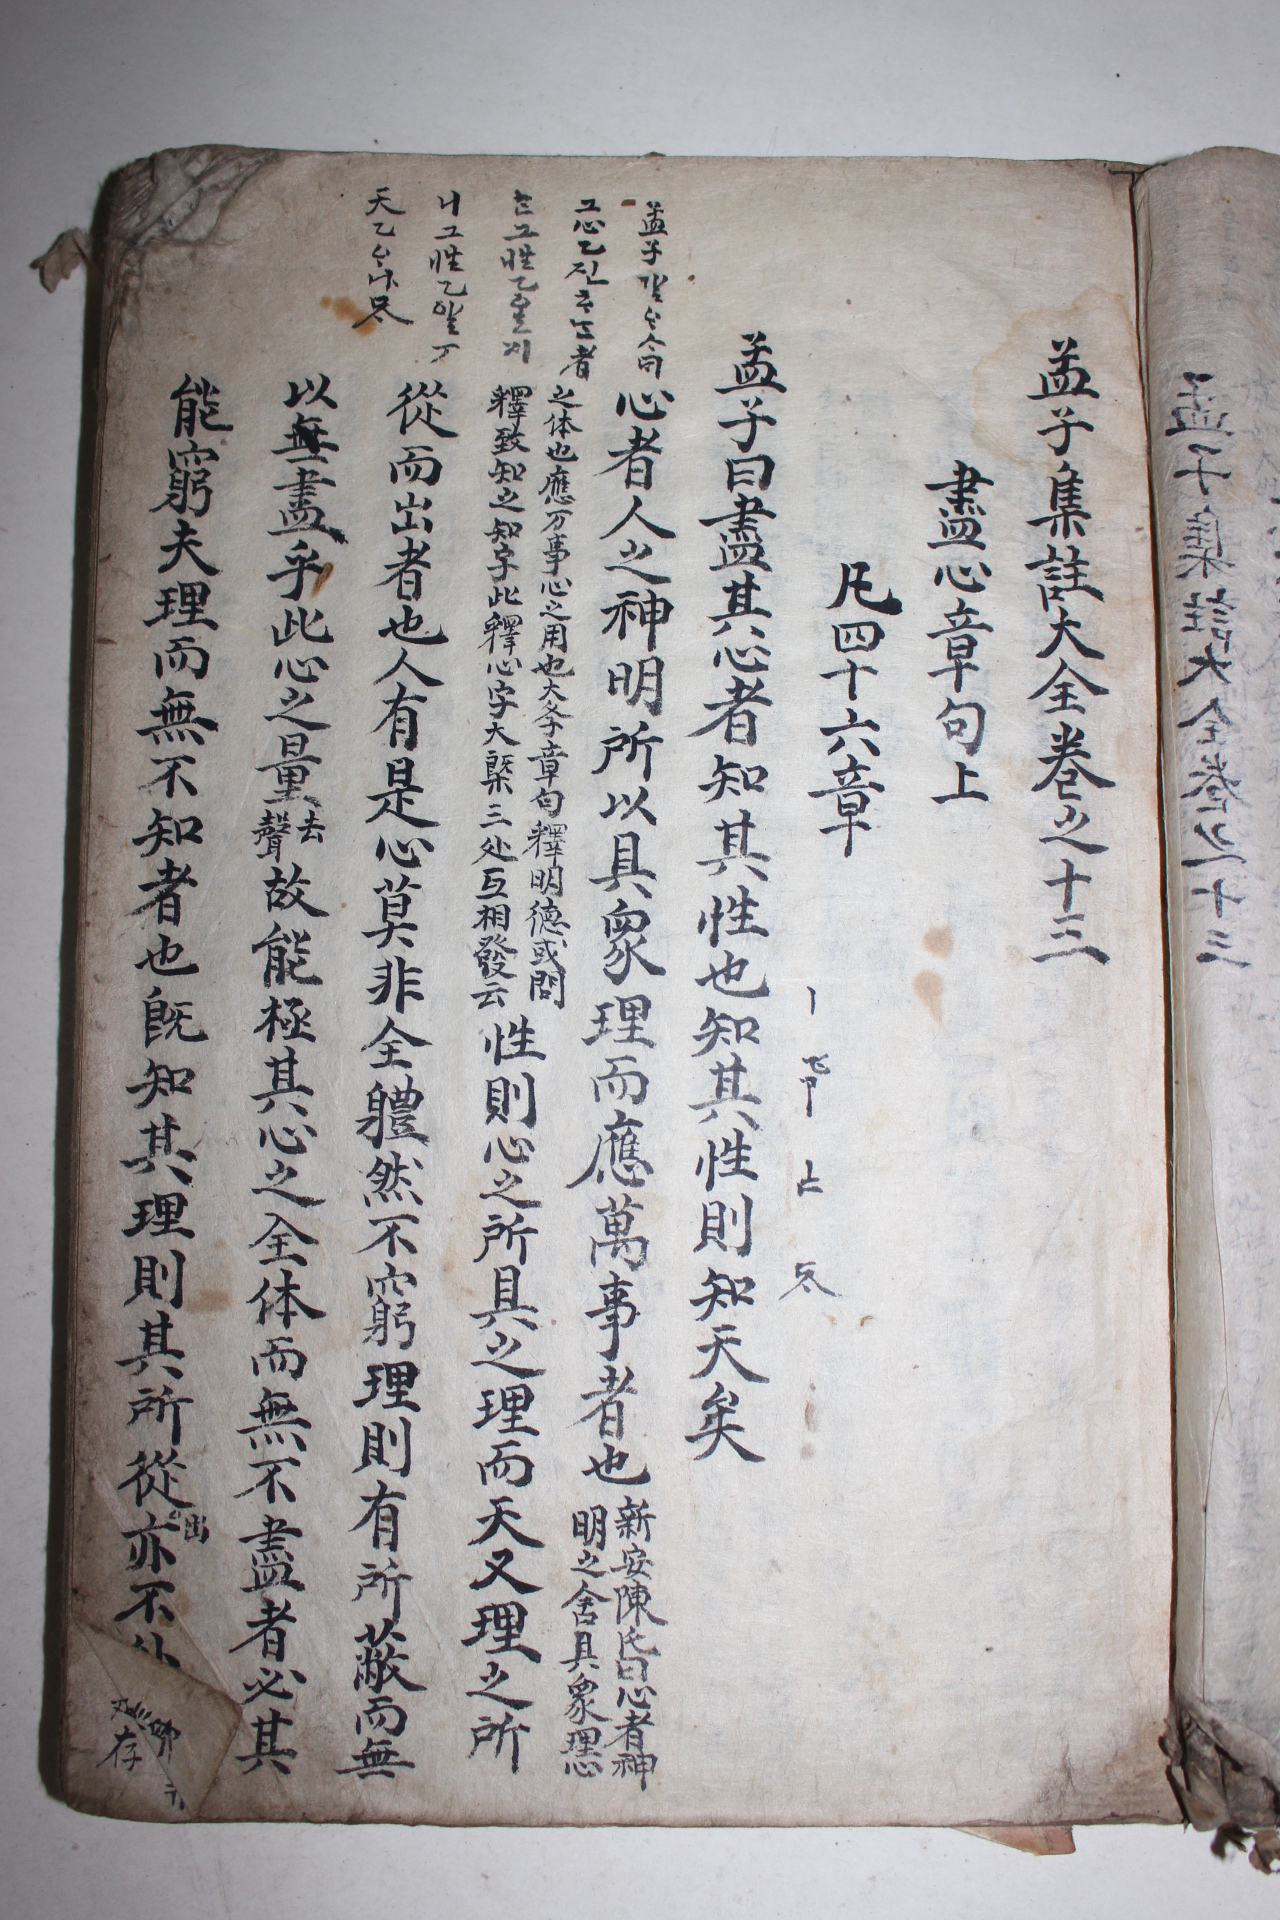 孟子集註大全卷之十三
盡心章句上
凡四十六章
孟子曰盡其心者知其性也知其性則知天矣
心者人之神明所以具衆理而應萬事者也
新安陳氏曰心者神
明之舍具衆理心
之体也應万事心之用也大斈章句釋明德或問
釋致知之知字此釋心字大槩三処互相發云
性則心之所具之理而天又理之所
從而出者也人有是心莫非全體然不窮理則有所蔽而無
以無盡乎此心之量
去
聲
故能極其心之全体而無不盡者必其
能窮夫理而無不知者也旣知其理則其所從
出
亦不
孟子
그心乙진
者
그性乙
니그性乙알
天乙
存